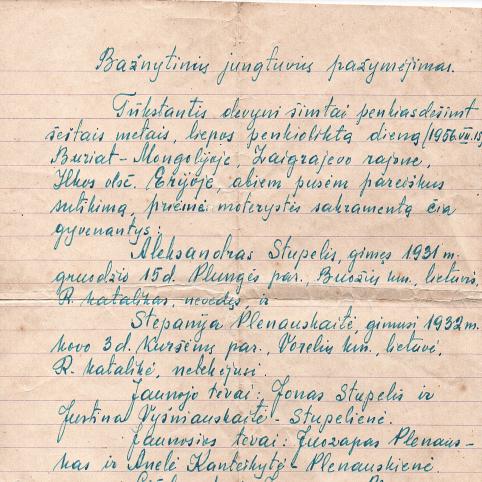 Bažnytinių jungtuvių pažymėjimas.
Tūkstantis devyni šimtai penkiasdešimt
šeštais metais, liepos penkioliktą dieną (1956.VII.15)
Buriat-Mongolijoje, Zaigrajevo rajone,
Ilkos vlsč. Erijoje, abiem pusėm pareiškus
sutikimą, priėmė moterystės sakramentą čia
gyvenantys:
Aleksandras Stupelis, gimęs 1931 m.
gruodžio 15 d. Plungės par., km., lietuvis,
R. katalikas, nevedęs ir
Stepanija Plenauskaitė, gimusi 1932 m.
kovo 3 d. Kuršėnų par., km., lietuvė,
R. katalikė, netekėjusi.
Jaunojo tėvai: Jonas Stupelis ir
Justina Vyšniauskaitė-Stupelienė.
Jaunosios tėvai: Juozapas Plenaus-
kas ir Anelė Kanteikytė-Plenauskienė.